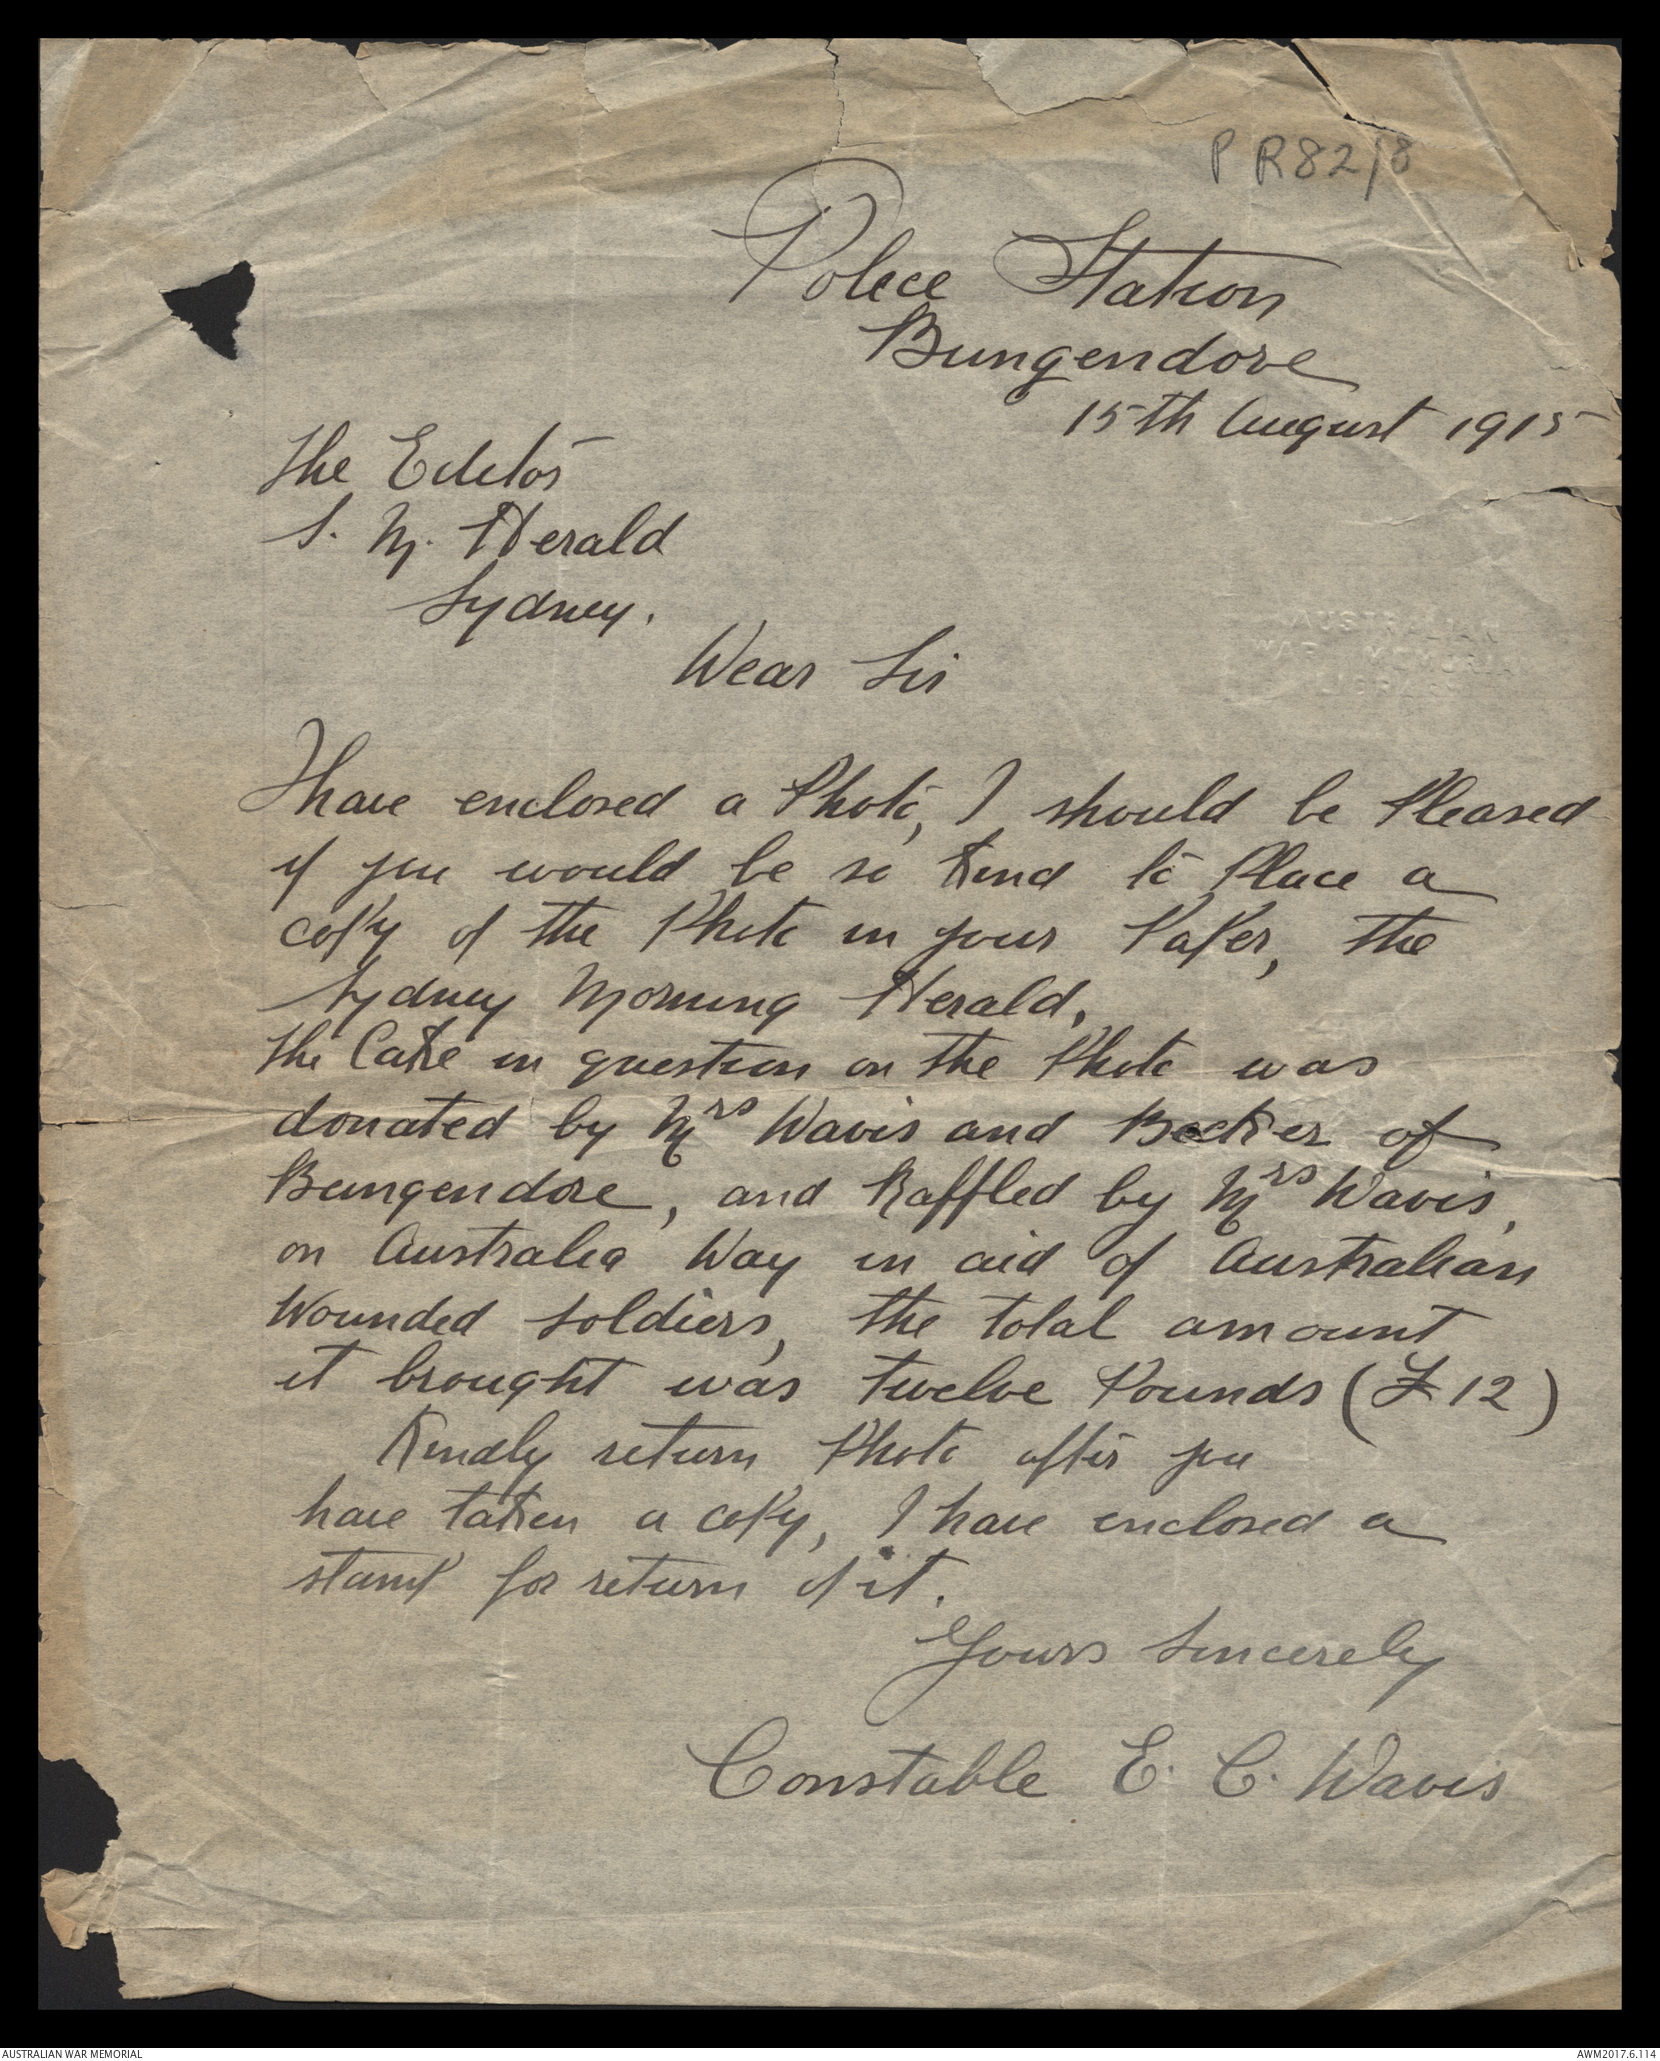 P R82/8
Police Station
Bungendore
15th August 1915
The Editor
S. M. Herald
Sydney.
Dear Sir
AUSTRALIAN
WAR MEMORIAL
LIBRARY
I have enclosed a Photo, I should be Pleased
if you would be so Kind to Place a
copy of the Photo in your Paper, the
Sydney Morning Herald.
The Cake in question on the Photo was
donated by Mrs Davis and Becker of
Bungendore, and Raffled by Mrs Davis,
on Australia Day in aid of Australian
Wounded Soldiers, the total amount
it brought was twelve Pounds (£12)
Kindly return Photo after you
have taken a copy, I have enclosed a
stamp for return of it.
Yours Sincerely
Constable E. C. Davis
AUSTRALIAN WAR MEMORIAL
AWM2017.6.114